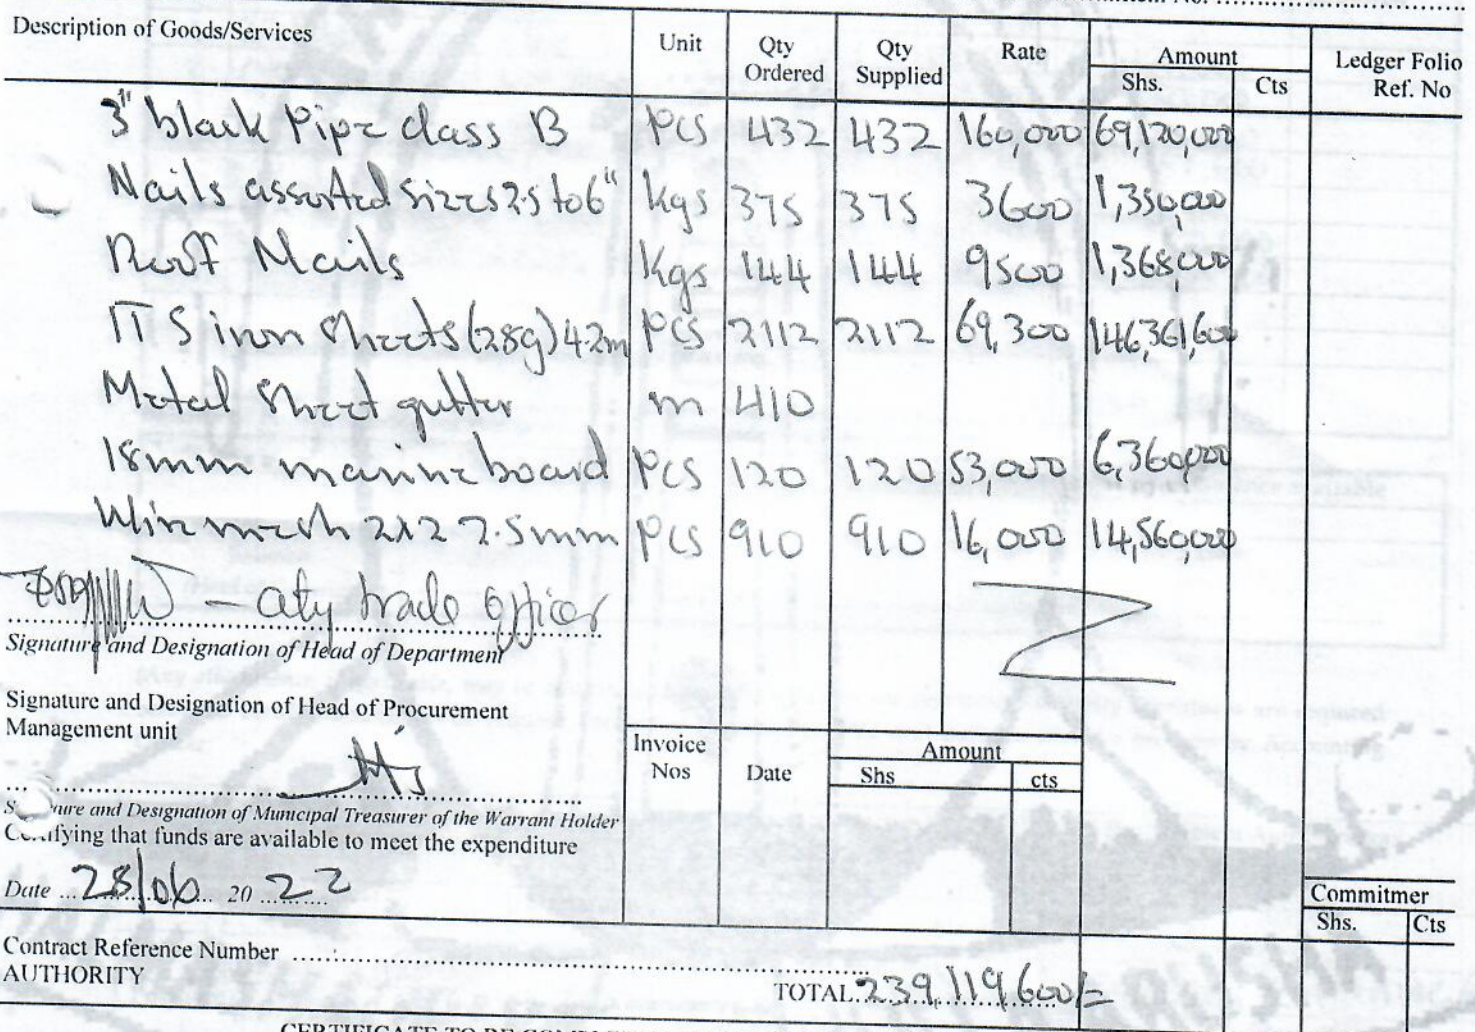 Description of Goods/Services Unit Qty Ordered Qty Supplied Rate Amount Shs. Cts Ledger Folio Ref. No
3" black Pipe class B Pcs 432 432 160,000 69,120,000
Nails assorted sizes 2.5 to 6" Kgs 375 375 3600 1,350,000
Roof Nails Kgs 144 144 9500 1,368,000
ITS iron Sheets (28g) 4.2m Pcs 2112 2112 69,300 146,361,600
Metal Sheet gutter m 410
18mm marine board Pcs 120 120 53,000 6,360,000
Wire mesh 2x2 2.5mm Pcs 910 910 16,000 14,560,000
– City trade officer
Signature and Designation of Head of Department
Signature and Designation of Head of Procurement
Management unit
Invoice Nos Date Amount Shs cts
Signature and Designation of Municipal Treasurer of the Warrant Holder
Certifying that funds are available to meet the expenditure
Date ...28/06... 20 ..22
Commitmer
Shs. Cts
Contract Reference Number
AUTHORITY
TOTAL 239,119,600/=